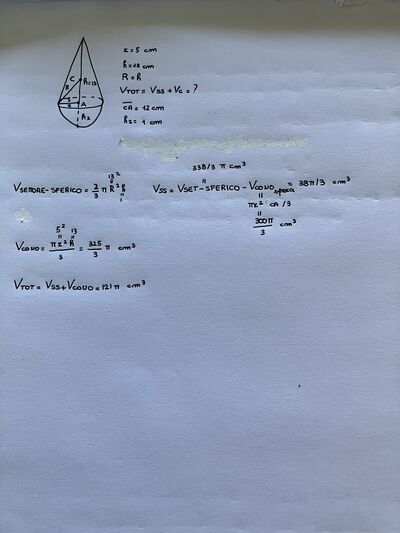 C
R
h=13
r
A
h₂
r = 5 cm
h = 13 cm
R = h
VTOT = VSS + VC = ?
CA = 12 cm
h₂ = 1 cm
338/3 π cm³
VSETTORE-SFERICO = 2/3 π R² h
13²
1
VSS = VSET-SFERICO - VCONO = 38π/3 cm³
πr² CA /3
300π/3 cm³
5² 13
VCONO = πr² h/3 = 325/3 π cm³
VTOT = VSS + VCONO = 121 π cm³